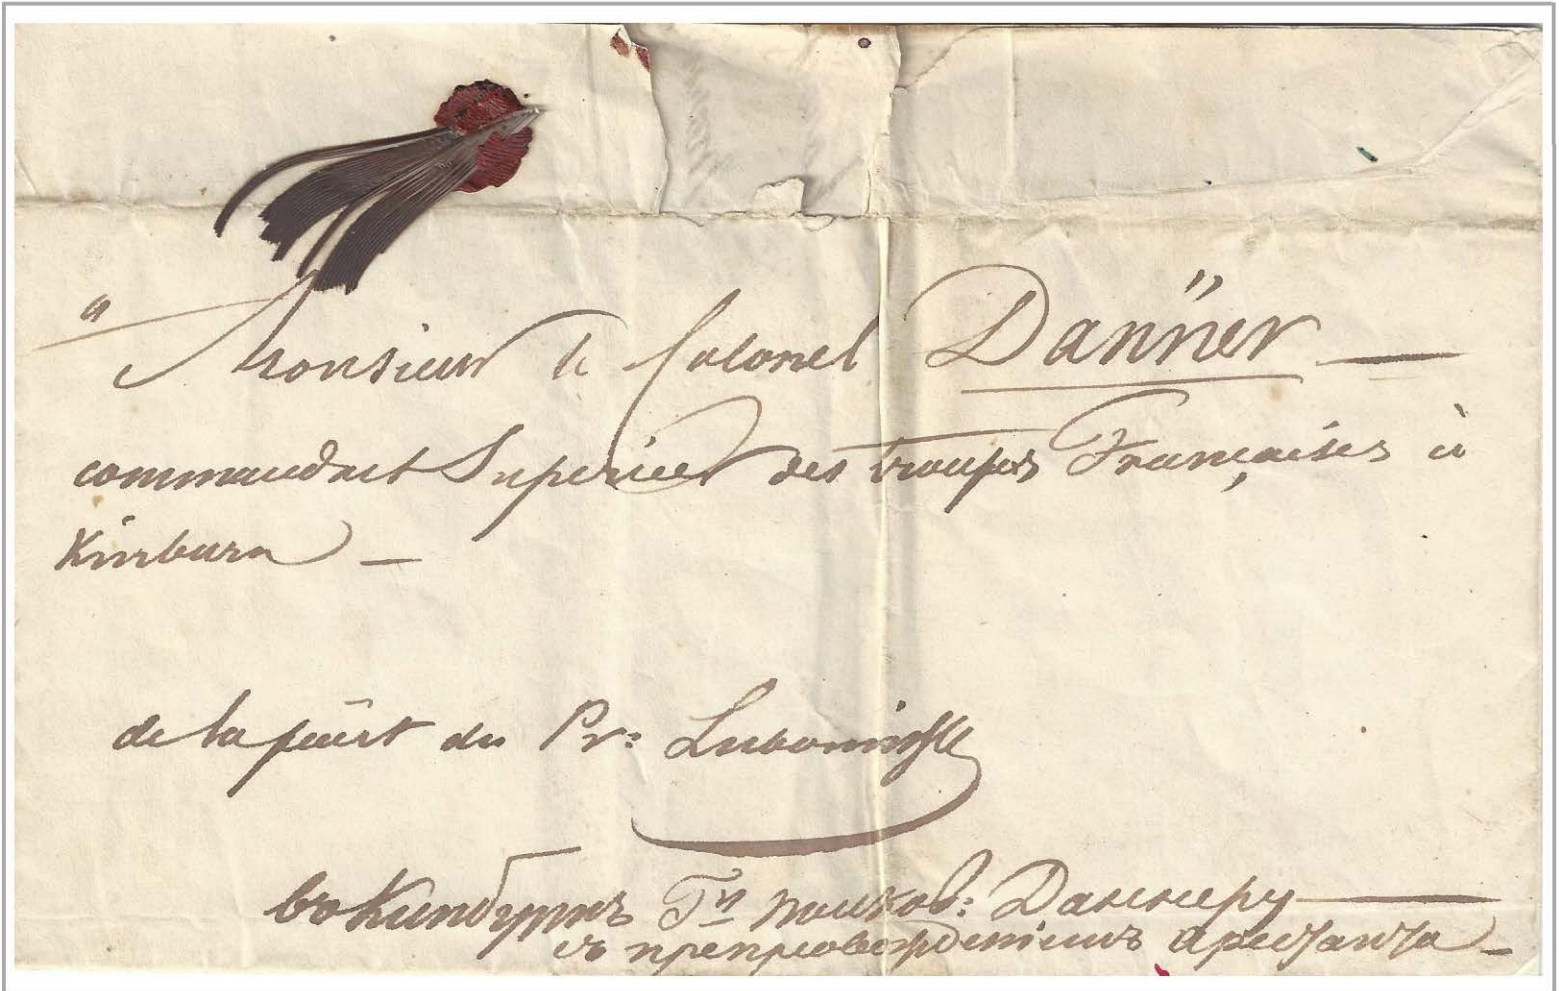 a Monsieur le Colonel Danner
commandant Superieur des troupes Françaises à
Kinburn
de la part du Pr: Lubomirsky
въ Кинбурнъ Гну полков: Даннеру
съ препровожденіемъ арестанта